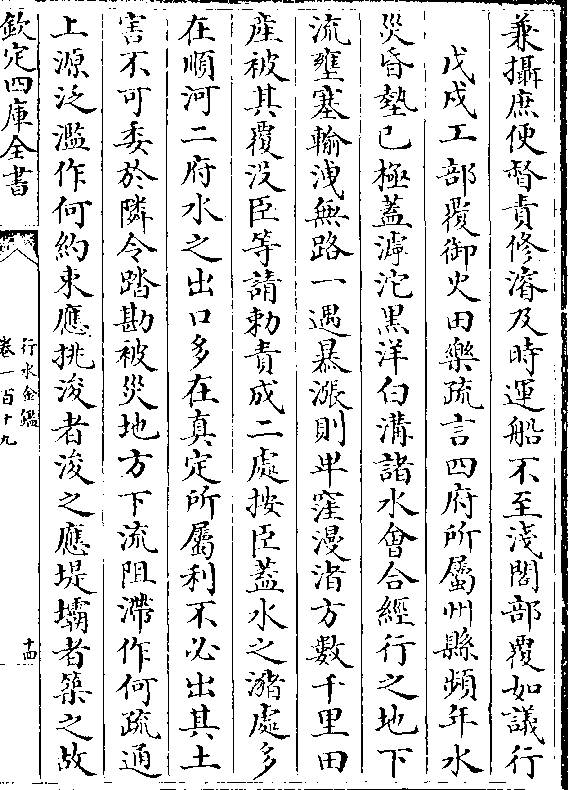 兼攝庶便督責修濬及時運船不至淺閣部覆如議行
戊戌工部覆御火田樂疏言四府所屬州縣頻年水
災昏墊已極蓋滹沱黒洋白溝諸水會合經行之地下
流壅塞輸洩無路一遇暴漲則卑窪漫渰方數千里田
産被其覆没臣等請勅責成二處按臣蓋水之瀦處多
在順河二府水之出口多在真定所屬利不必出其土
害不可委於隣令踏勘被災地方下流阻滯作何疏通
上源泛濫作何約束應挑浚者浚之應堤壩者築之故
欽定四庫全書
行水金鑑
卷一百十九
十四